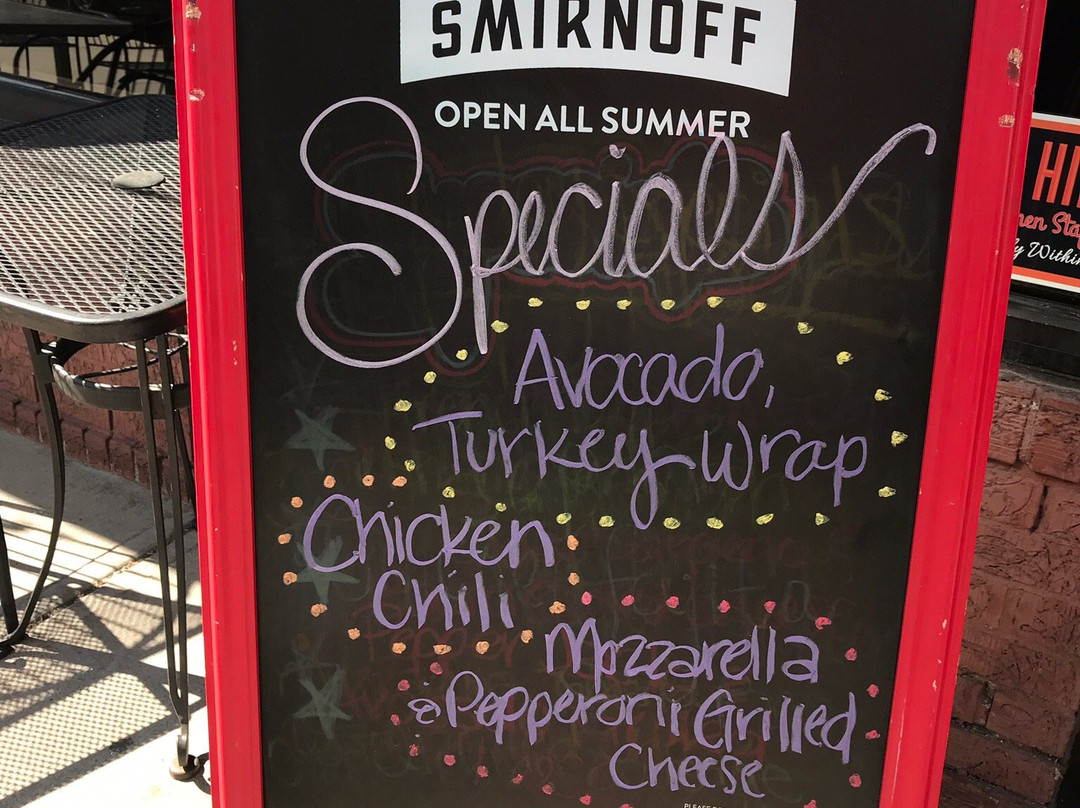 SMIRNOFF
OPEN ALL SUMMER
Specials
Avocado,
Turkey Wrap
Chicken
Chili
Mozzarella
& Pepperoni Grilled
Cheese
PLEASE
HI
y Within